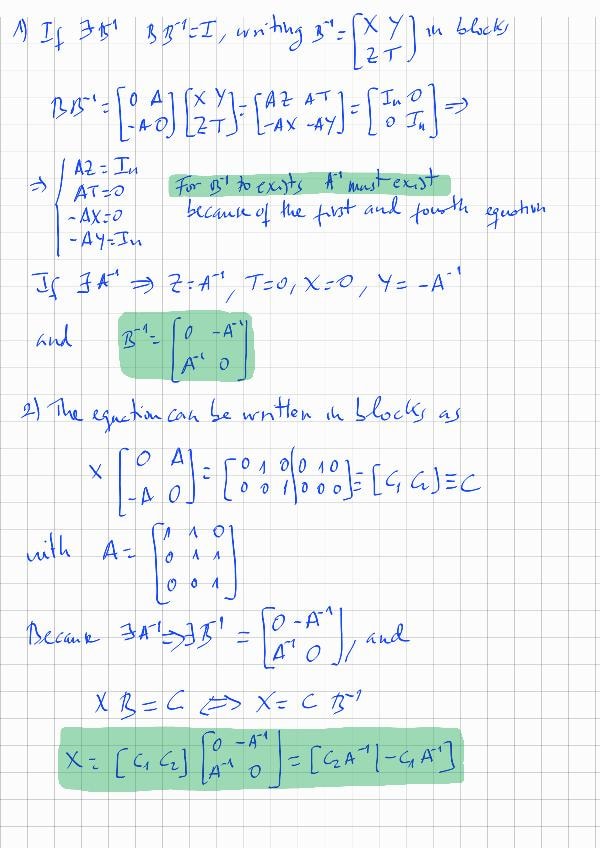 1) If ∃B⁻¹ BB⁻¹=I, writing B⁻¹=[X Y; Z T] in blocks
BB⁻¹=[0 A; -A 0][X Y; Z T]=[AZ AT; -AX -AY]=[In 0; 0 In] ⇒
⇒ { AZ=In
AT=0
-AX=0
-AY=In
For B⁻¹ to exists A⁻¹ must exist
because of the first and fourth equation
If ∃A⁻¹ ⇒ Z=A⁻¹, T=0, X=0, Y=-A⁻¹
and B⁻¹=[0 -A⁻¹; A⁻¹ 0]
2) The equation can be written in blocks as
X [0 A; -A 0]=[0 1 0|0 1 0; 0 0 1|0 0 0]=[C₁ C₂]≡C
with A=[1 1 0; 0 1 1; 0 0 1]
Because ∃A⁻¹⇒∃B⁻¹=[0 -A⁻¹; A⁻¹ 0], and
X B=C ⇔ X=C B⁻¹
X=[C₁ C₂][0 -A⁻¹; A⁻¹ 0]=[C₂A⁻¹|-C₁A⁻¹]